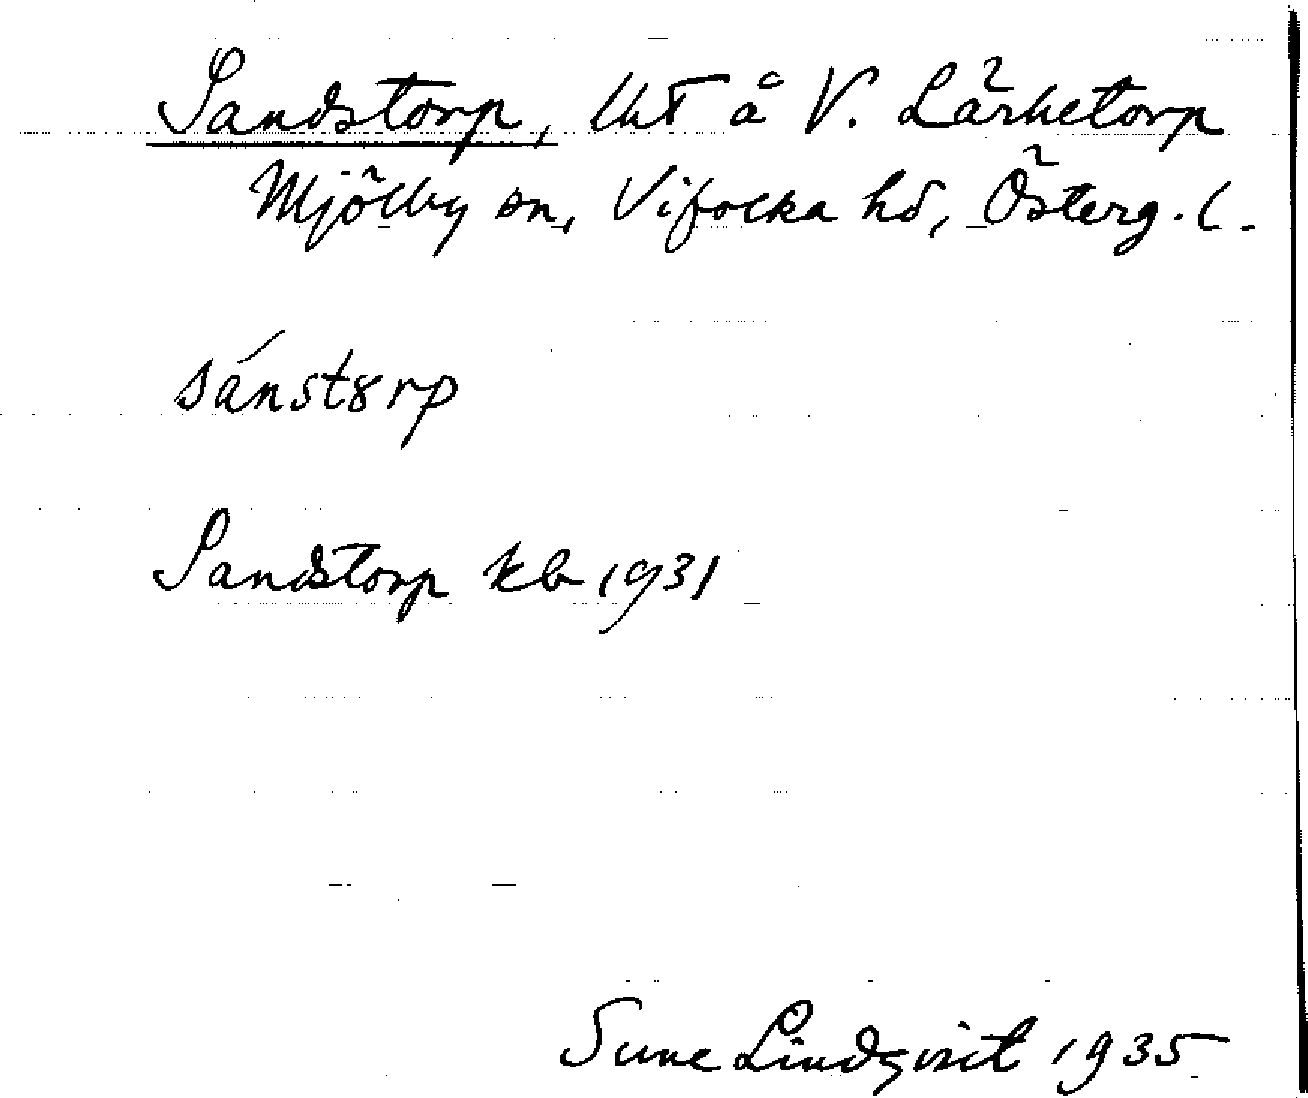 Sandstorp, lht å V. Lärketorp
Mjölby sn, Vifolka hd, Österg. l.
sánstȣrp
Sandstorp kb 1931
Sune Lindqvist 1935